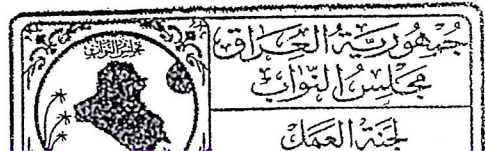 جمهورية العراق
مجلس النواب
لجنة العمل
مجلس النواب